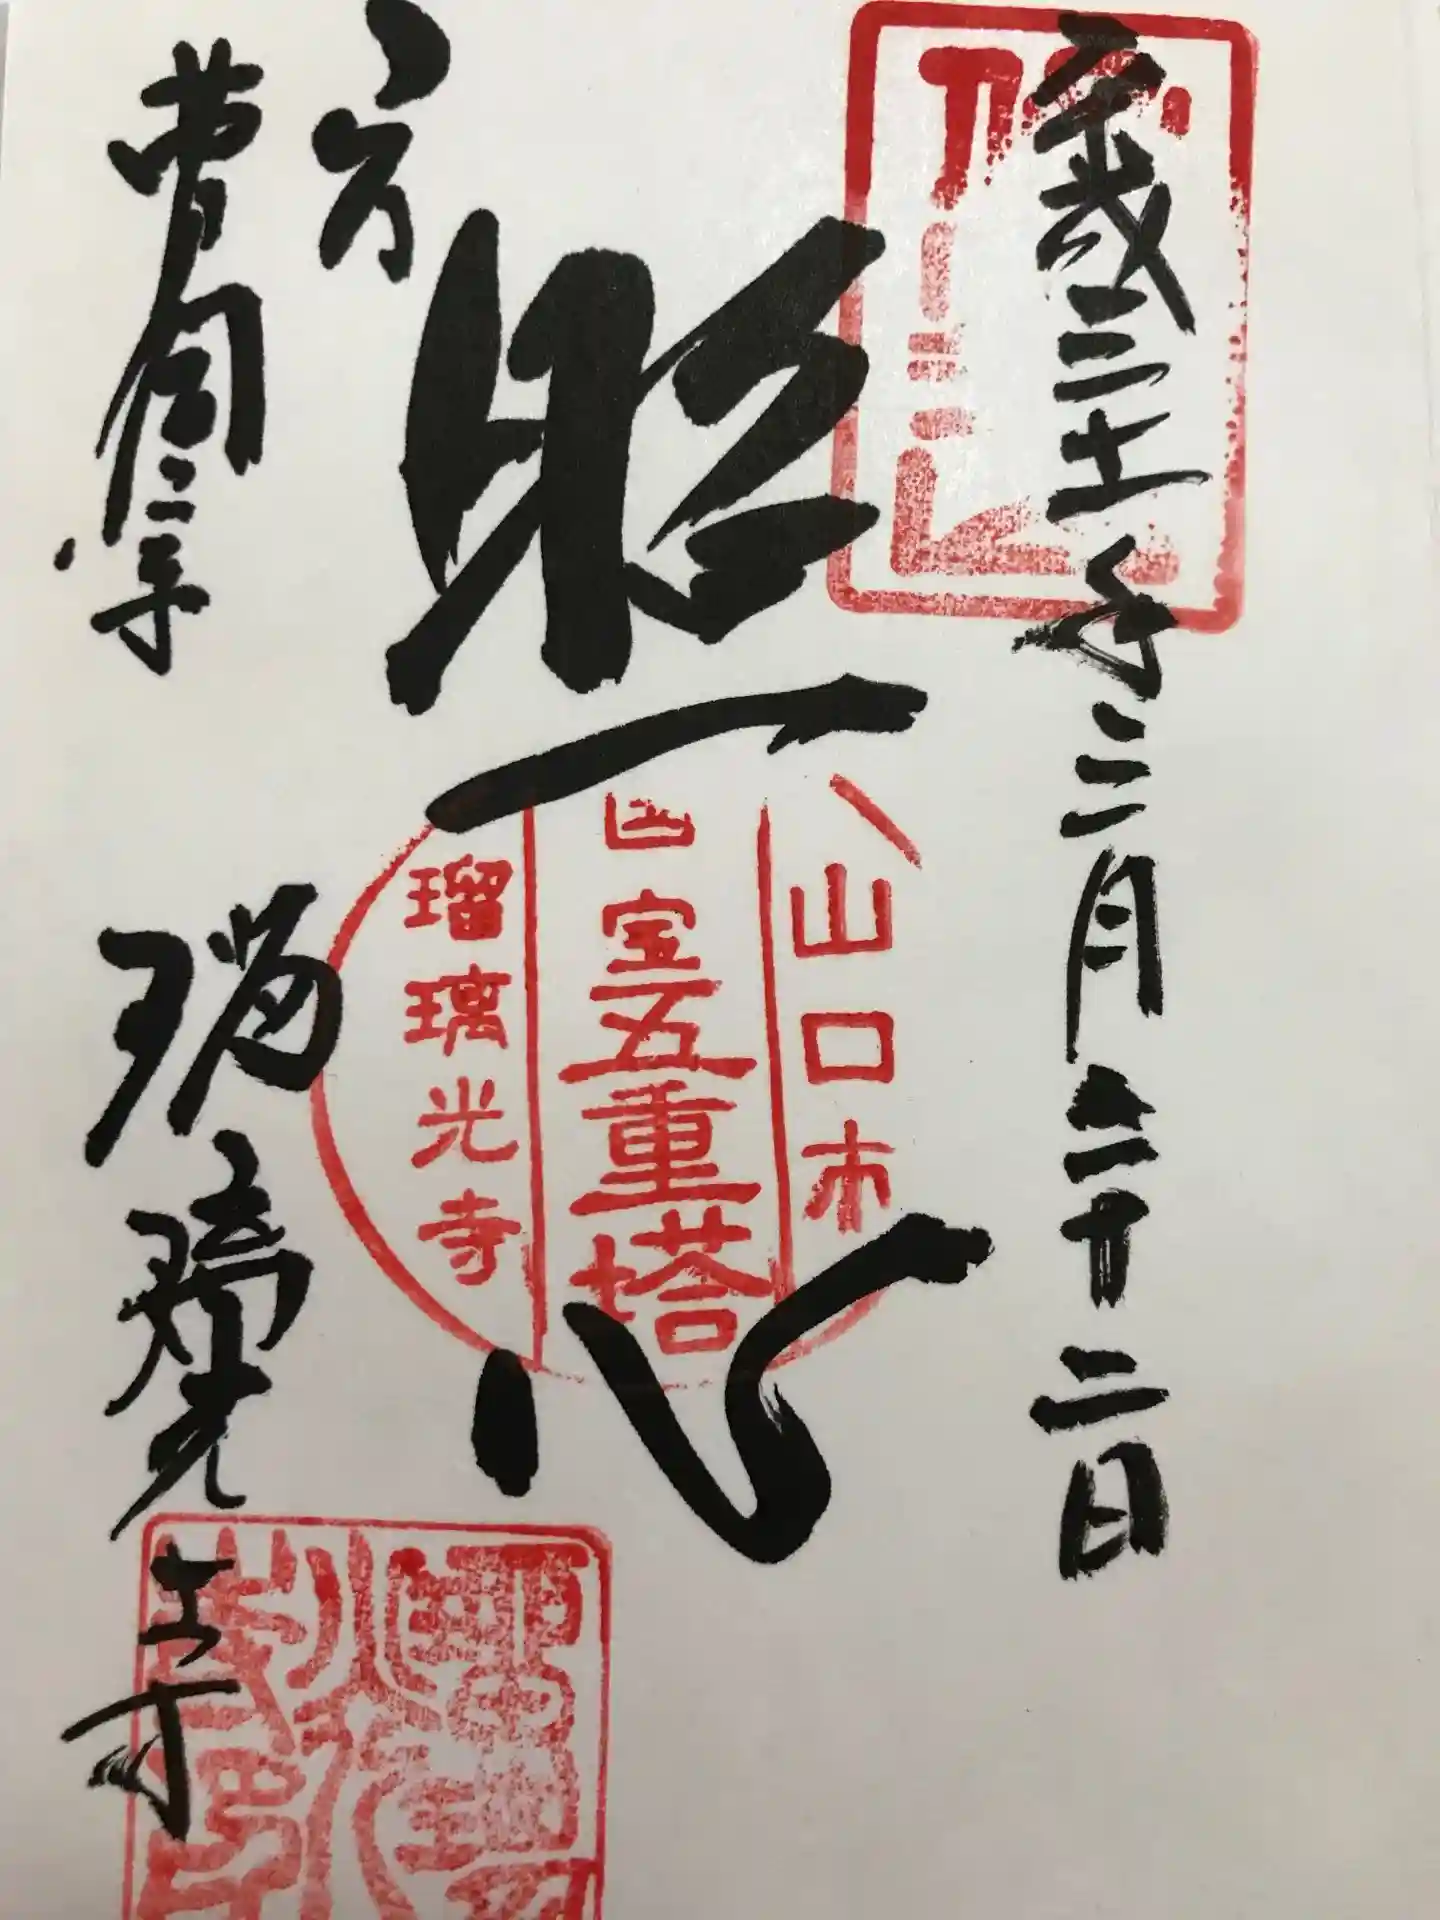 平成三十一年三月二十二日
照心
山口市
国宝五重塔
瑠璃光寺
曹洞宗
瑠璃光寺